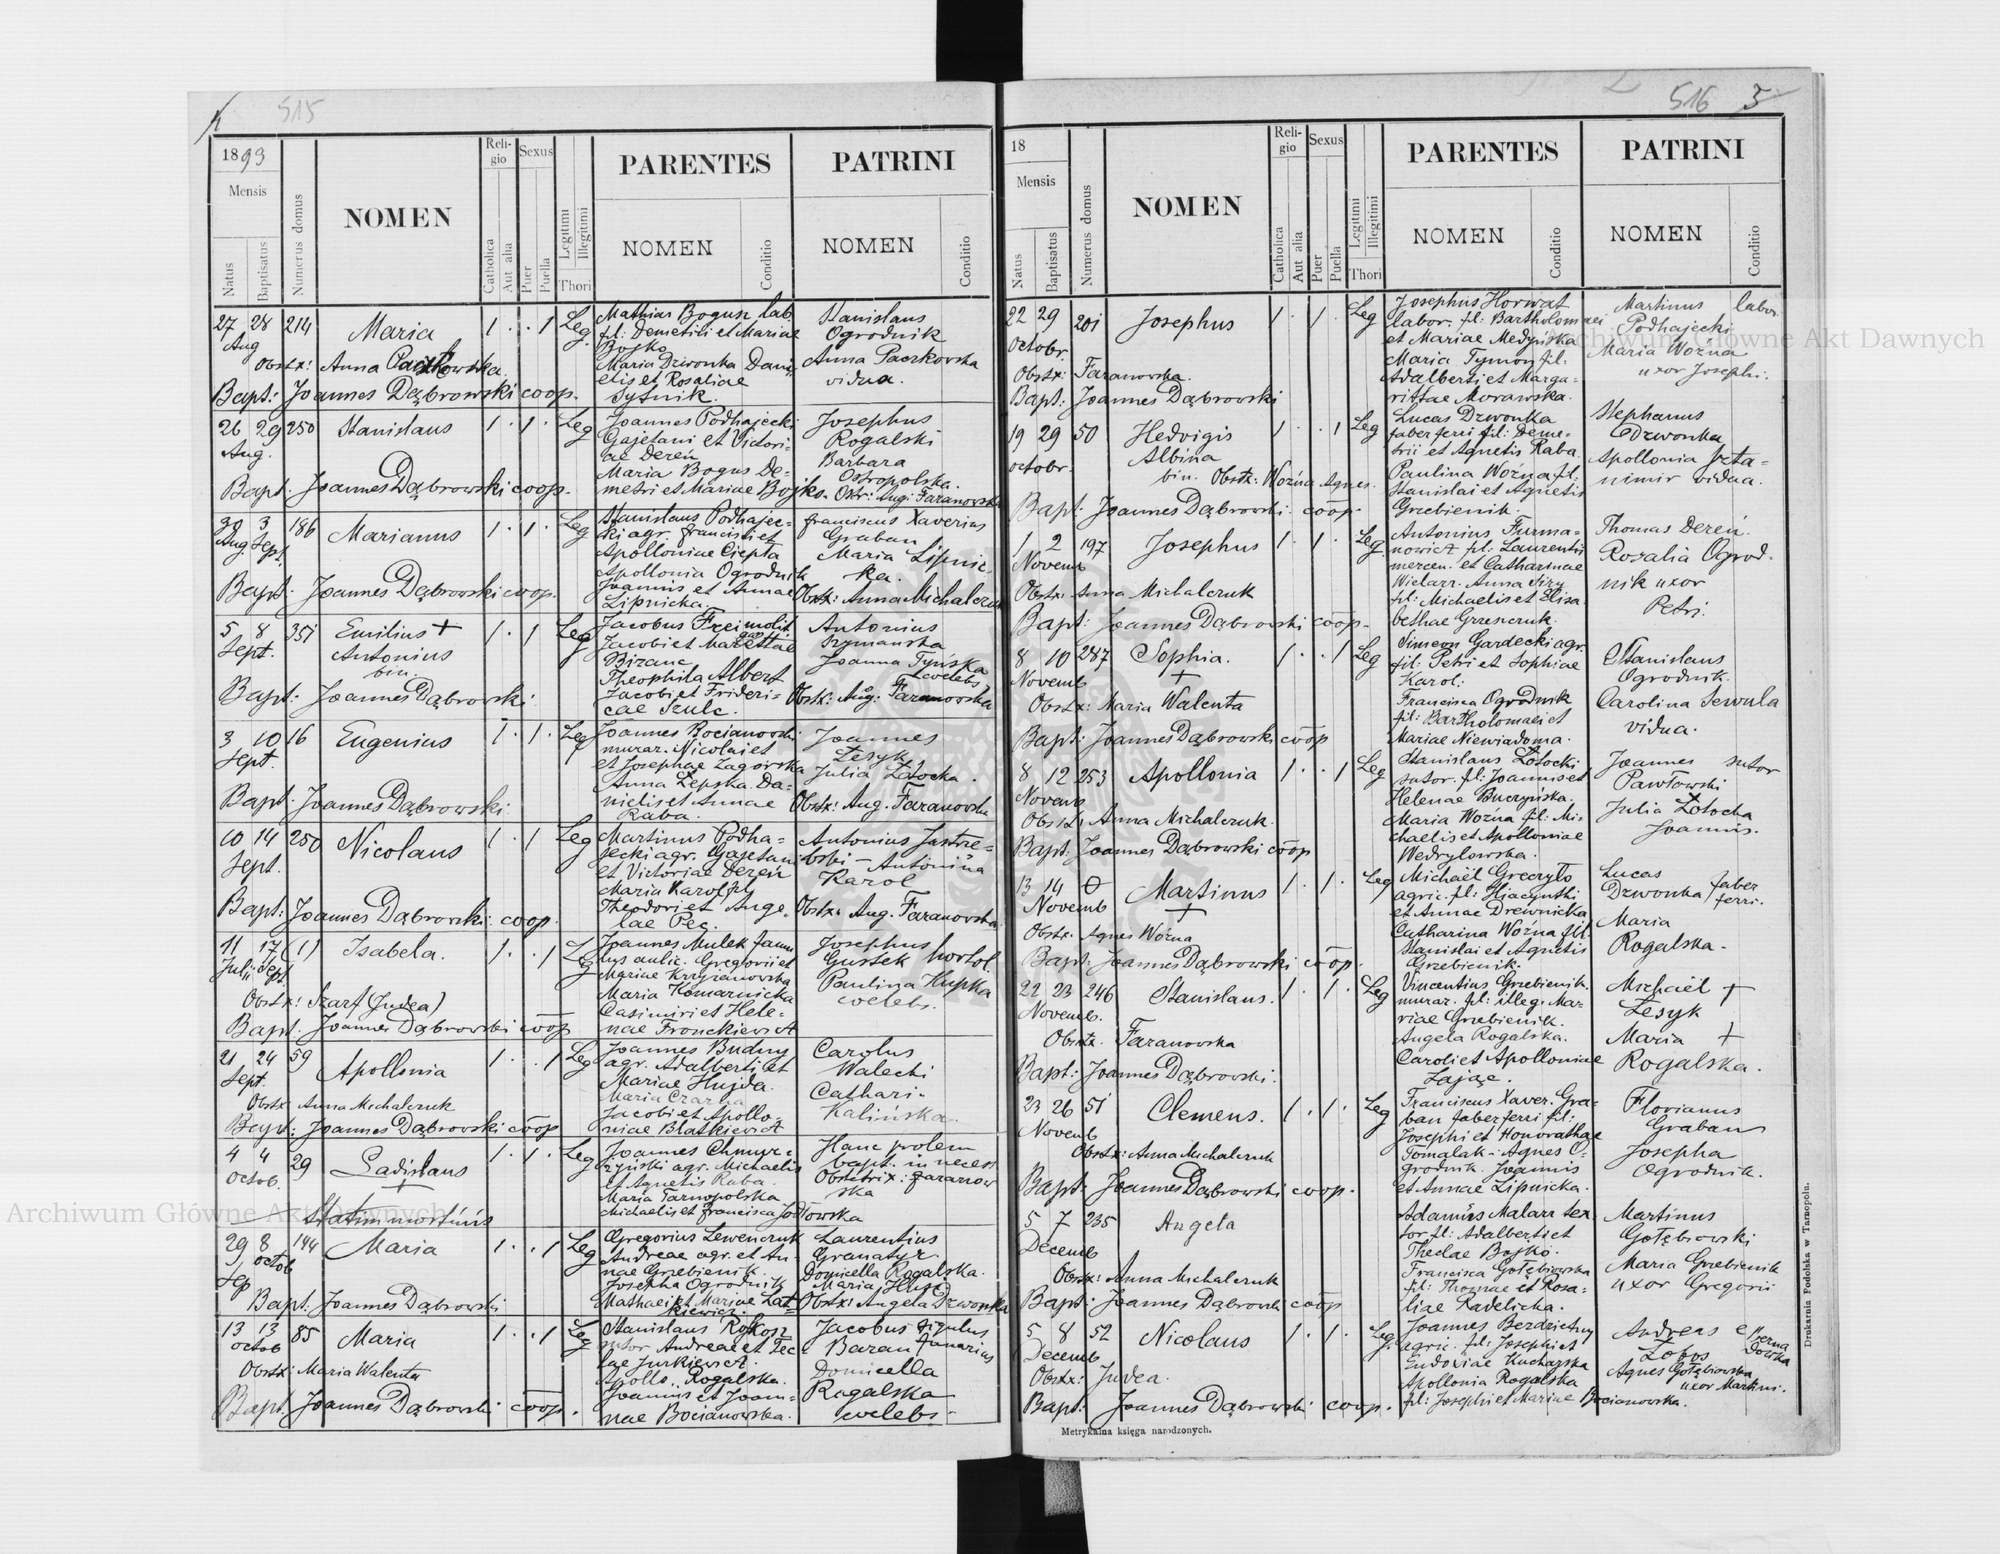 515
1893
Mensis
Natus
Baptisatus
Numerus domus
NOMEN
Religio
Catholica
Aut alia
Sexus
Puer
Puella
Legitimi
Illegitimi
Thori
PARENTES
NOMEN
Conditio
PATRINI
NOMEN
Conditio
27 28 214 Maria 1 . . 1 Leg
Aug
Mathias Bogusz lab.
fil: Demetrii et Mariae
Bojko
Maria Dzwonka Dani-
elis et Rosaliae
Sytnik.
Stanislaus
Ogrodnik
Anna Paczkowska
vidua.
Obstx: Anna Paczkowska.
Bapt: Joannes Dąbrowski coop.
26 29 250 Stanislaus 1 . 1 . Leg
Aug.
Joannes Podhajecki
Gajetani et Victori-
ae Dereń
Maria Bogus De-
metri et Mariae Bojko.
Josephus
Rogalski
Barbara
Ostropolska.
Obstr: Aug: Faranowska
Bapt. Joannes Dąbrowski coop.
30 3 186 Marianus 1 . 1 . Leg
Aug Sept.
Stanislaus Podhajec-
ki agr. Francisci et
Apolloniae Ciepta
Apollonia Ogrodnik
Joannis et Annae
Lipnicka.
Franciscus Xaverius
Graban
Maria Lipnic-
ka.
Obstx: Anna Michalczuk
Bapt. Joannes Dąbrowski coop.
5 8 351 Emilius + 1 . 1 Leg
Sept.
Antonius
bin.
Jacobus Freimolit
Jacobi et
Bizanc
Theophila Albert
Jacobi et Frideri-
cae Szulc.
Antonius
Szymanska
Joanna Tyńska
coelebs
Obstx: Aug: Faranowska
Bapt: Joannes Dąbrowski
3 10 16 Eugenius 1 . 1 . Leg
Sept.
Joannes Bocianowski
murar. Nicolai et
et Josephae Zagórska
Anna Zepska. Da-
nielis et Annae
Raba.
Joannes
Zesyk
Julia Złotocka.
Obstx: Aug. Faranowska
Bapt: Joannes Dąbrowski
10 14 250 Nicolaus 1 . 1 Leg
Sept.
Martinus Podha-
jecki agr. Gajetani
et Victoriae Dereń
Maria Karol fil
Theodori et Ange-
lae Pec.
Antonius Jastrze-
bski - Antonina
Karol
Obstx: Aug. Faranowska
Bapt: Joannes Dąbrowski. coop.
11 17 (1) Isabela. 1 . . 1 Leg
Julii Sept.
Joannes Mulek famu
lus aulic. Gregorii et
Mariae Kryjanowska
Maria Komarnicka
Casimiri et Hele-
nae Fronckiewicz
Josephus hortol.
Gustek
Paulina Kupka
coelebs.
Obstx: Szarf (Judea)
Bapt. Joannes Dąbrowski coop
21 24 59 Apollonia 1 . . 1 Leg
Sept.
Joannes Budny
agr. Adalberti et
Mariae Hujda.
Maria Czarna
Jacobi et Apollo-
niae Blatkiewicz
Carolus
Walecki
Cathari-
Kalińska.
Obstx Anna Michalczuk
Bapt: Joannes Dąbrowski coop
4 4 29 Ladislaus 1 . 1 . Leg
Octob.
+
Joannes Chmyr-
zyński agr. Michaelis
et Agnetis Raba.
Maria Tarnopolska
Michaelis et Francisca Jodłowska
Hanc prolem
bapt. in necess.
Obstetrix: Faranow
ska
Statim mortuus
29 8 144 Maria 1 . . 1 Leg
Sep octob
Gregorius Lewenczuk
Andreae agr. et An-
nae Grzebienik.
Josepha Ogrodnik
Mathaei et Mariae Zat-
kiewicz.
Laurentius
Granatyr.
Domicella Rogalska.
Maria Huśc
Obstx: Angela Dzwonka
Bapt. Joannes Dąbrowski
13 13 85 Maria 1 . . 1 Leg
octob
Stanislaus Rokosz
sutor Andreae et Tec-
lae Jurkiewicz.
Apollo.. Rogalska.
Joannis et Joan-
nae Bocianowska.
Jacobus figulus
Baran
Domicella
Rogalska
coelebs.
Obstx: Maria Walenta
Bapt. Joannes Dąbrowski coop.
516 5
18
Mensis
Natus
Baptisatus
Numerus domus
NOMEN
Religio
Catholica
Aut alia
Sexus
Puer
Puella
Legitimi
Illegitimi
Thori
PARENTES
NOMEN
Conditio
PATRINI
NOMEN
Conditio
22 29 201 Josephus 1 . 1 . Leg
Octobr.
Josephus Horwat
labor. fil: Bartholomaei
et Mariae Medyńska
Maria Tymon fil:
Adalberti et Marga-
rittae Morawska.
Martinus labor.
Podhajecki
Maria Woźna
uxor Josephi.
Obstx: Faranowska.
Bapt: Joannes Dąbrowski
19 29 50 Hedvigis 1 . . 1 Leg
octobr.
Albina
bin. Obstx: Woźna Agnes.
Lucas Dzwonka
faber ferri fil: Deme-
trii et Agnetis Raba.
Paulina Woźna fil:
Stanislai et Agnetis
Grzebienik.
Stephanus
Dzwonka
Apollonia Jzta-
nimir vidua.
Bapt. Joannes Dąbrowski. coop.
1 2 197 Josephus 1 . 1 . Leg
Novemb
Antonius Furma-
nowicz fil: Laurentii
mercen. et Catharinae
Wielarz. Anna Sizy
fil: Michaelis et Elisa-
bethae Grzenczuk.
Thomas Dereń.
Rosalia Ogrod-
nik uxor
Petri.
Obstx. Anna Michalczuk
Bapt: Joannes Dąbrowski coop.
8 10 287 Sophia. 1 . . 1 Leg
Novemb
+
Simeon Gardecki agr.
fil: Petri et Sophiae
Karol:
Francisca Ogrodnik
fil: Bartholomaei et
Mariae Niewiadoma.
Stanislaus
Ogrodnik.
Carolina Sewula
vidua.
Obstx: Maria Walenta
Bapt: Joannes Dąbrowski coop
8 12 253 Apollonia 1 . . 1 Leg
Novemb
Stanislaus Złotocki
sutor. fil: Joannis et
Helenae Buczyńska.
Maria Woźna fil: Mi-
chaelis et Apolloniae
Wedrylowska.
Joannes sutor
Pawłowski
Julia Złotocka
Joannis.
Obstx: Anna Michalczuk.
Bapt: Joannes Dąbrowski coop
13 14 0 Martinus 1 . 1 . Leg
Novemb +
Michaël Greczyło
agric. fil: Hiacynthi
et Annae Drewnicka
Catharina Woźna fil
Stanislai et Agnetis
Grzebienik.
Lucas
Dzwonka faber
ferri.
Maria
Rogalska.
Obstx. Agnes Woźna
Bapt: Joannes Dąbrowski coop.
22 23 246 Stanislaus. 1 . 1 . Leg
Novemb.
Vincentius Grzebienik.
murar. fil: illeg. Mar-
riae Grzebienik.
Angela Rogalska.
Caroli et Apolloniae
Zając.
Michaël +
Zesyk
Maria +
Rogalska.
Obstx. Faranowska
Bapt: Joannes Dąbrowski.
23 26 51 Clemens. 1 . 1 . Leg
Novemb
Franciscus Xaver. Gra-
ban faber ferri fil:
Josephi et Honorathae
Tomalak - Agnes O-
grodnik. Joannis
et Annae Lipnicka.
Florianus
Graban
Josepha
Ogrodnik.
Obstx: Anna Michalczuk
Bapt: Joannes Dąbrowski coop.
5 7 235 Angela
Decemb
Adamus Malarz tex-
tor fil: Adalberti et
Theclae Bojko.
Francisca Gołębiowska
fil: Thomae et Rosa-
liae Radelicka.
Martinus
Gołębiowski
Maria Grzebienik
uxor Gregorii
Obstx: Anna Michalczuk
Bapt: Joannes Dąbrowski coop
5 8 52 Nicolaus 1 . 1 . Leg.
Decemb
Joannes Bezdzietny
agric. fil: Josephi et
Eudoxiae Kuchapska
Apollonia Rogalska
fil: Josephi et Mariae Bocianowska.
Andreas
Zobos
Agnes Gołębiowska
uxor Martini.
Obstx: Judea.
Bapt: Joannes Dąbrowski coop.
Metrykalna księga narodzonych.
Drukarnia Podolska w Tarnopolu.
Archiwum Główne Akt Dawnych
Archiwum Główne Akt Dawnych